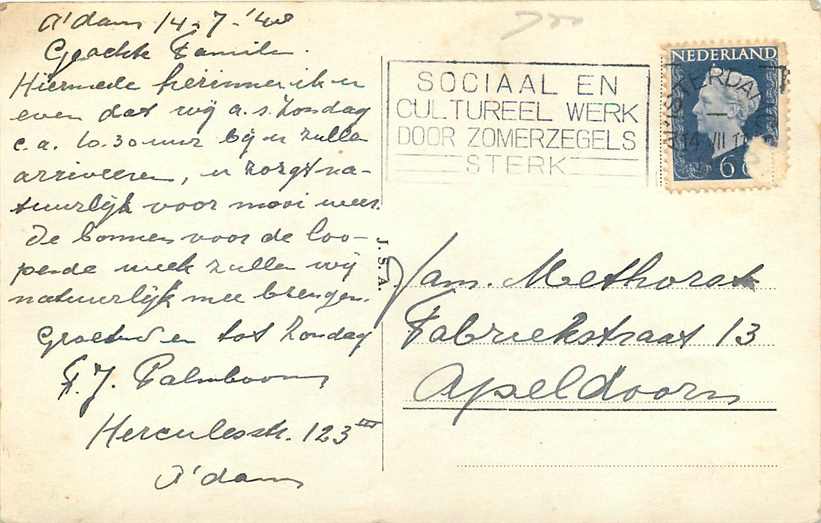 A'dam 14-7-'48
Geachte Familie.
Hiermede herinner ik u
even dat wij a.s. Zondag
c.a. 10.30 uur bij u zullen
arriveeren, u zorgt na-
tuurlijk voor mooi weer.
De bonnen voor de loo-
pende week zullen wij
natuurlijk mee brengen.
Groetend en tot Zondag
F. J. Palmboom
Herculesstr. 123 III
A'dam
J.S.A.
SOCIAAL EN
CULTUREEL WERK
DOOR ZOMERZEGELS
STERK
NEDERLAND
AMSTERDAM
14 VII
6
Fam. Methorst
Fabriekstraat 13
Apeldoorn